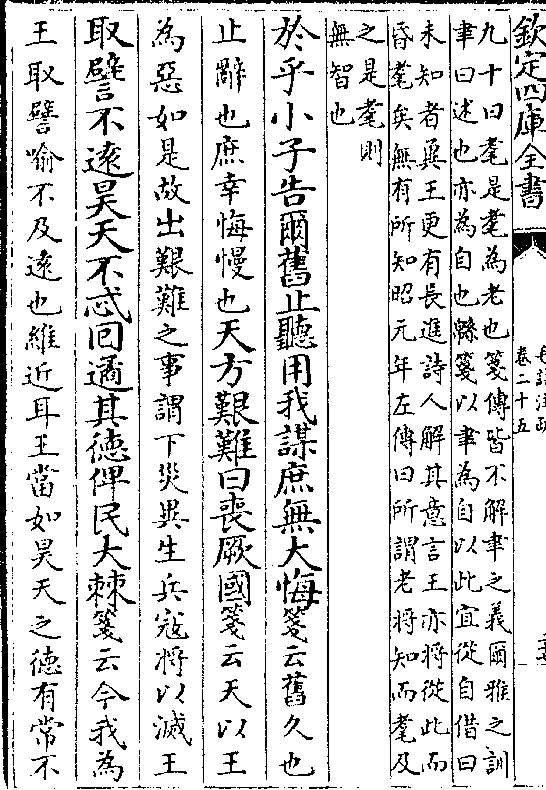 欽定四庫全書
卷二十五
九十曰耄是耄為老也箋傳皆不解聿之義爾雅之訓
聿曰述也亦為自也緜箋以聿為自以此宜從自借曰
未知者冀王更有長進詩人解其意言王亦將從此而
昏耄矣無有所知昭元年左傳曰所謂老將知而耄及
之是耄則
無智也
於乎小子告爾舊止聽用我謀庶無大悔箋云舊久也
止辭也庶幸悔慢也天方艱難曰喪厥國箋云天以王
為惡如是故出艱難之事謂下災異生兵寇將以滅王
取譬不遠昊天不忒回遹其德俾民大棘箋云今我為
王取譬喻不及遠也維近耳王當如昊天之德有常不